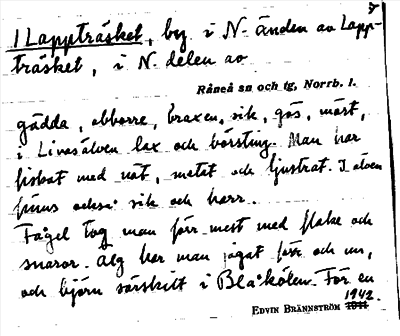 1 Lappträsket, by i N. änden av Lapp-
träsket, i N. delen av
Råneå sn och tg, Norrb. l.
gädda, abborre, braxen, sik, gös, mört,
i Livasälven lax och börsting. Man har
fiskat med nät, metat och ljustrat. I älven
finns också sik och harr.
Fågel tog man förr mest med flake och
snaror. Älg har man jagat förr och nu,
och björn särskilt i Blåkölen. För en
EDVIN BRÄNNSTRÖM 1942.